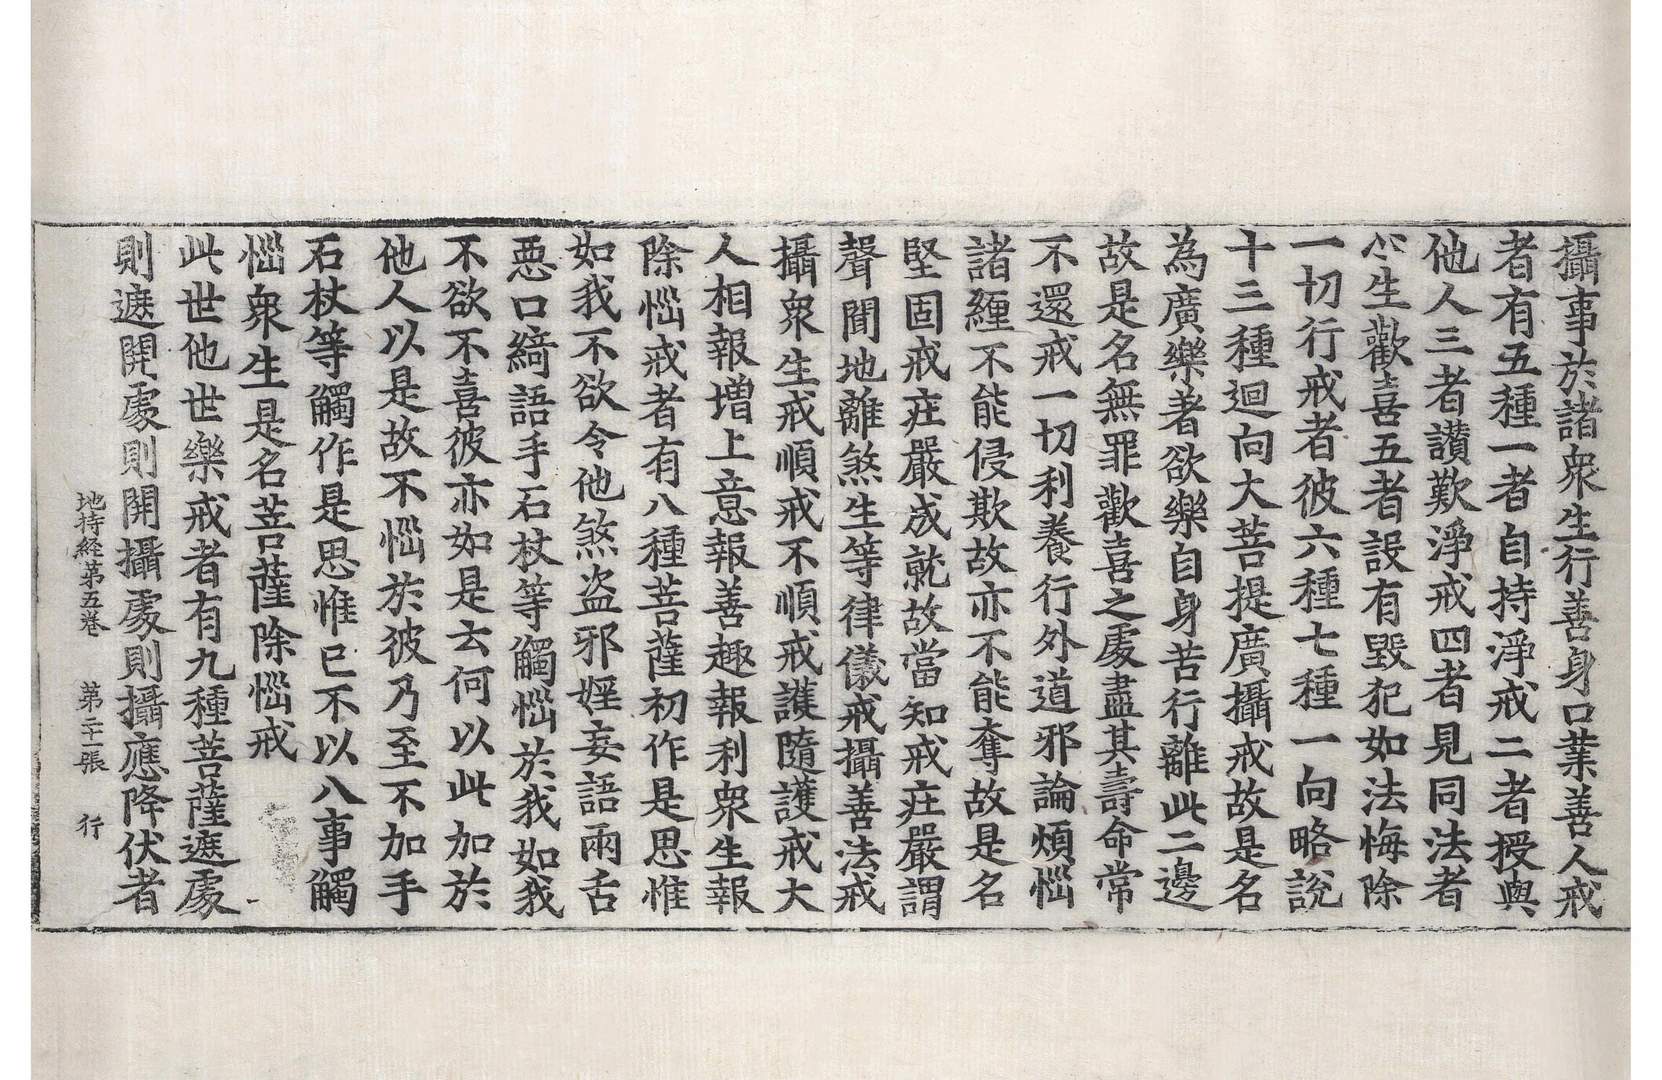 攝事於諸衆生行善身口業善人戒
者有五種一者自持淨戒二者授與
他人三者讃歎淨戒四者見同法者
心生歡喜五者設有毀犯如法悔除
一切行戒者彼六種七種一向略說
十三種迴向大菩提廣攝戒故是名
為廣樂著欲樂自身苦行離此二邊
故是名無罪歡喜之處盡其壽命常
不還戒一切利養行外道邪論煩惱
諸纏不能侵欺故亦不能奪故是名
堅固戒庄嚴成就故當知戒庄嚴謂
聲聞地離煞生等律儀戒攝善法戒
攝衆生戒順戒不順戒護隨護戒大
人相報增上意報善趣報利衆生報
除惱戒者有八種菩薩初作是思惟
如我不欲令他煞盗邪婬妄語兩舌
惡口綺語手石杖等觸惱於我如我
不欲不喜彼亦如是云何以此加於
他人以是故不惱於彼乃至不加手
石杖等觸作是思惟已不以八事觸
惱衆生是名菩薩除惱戒
此世他世樂戒者有九種菩薩遮處
則遮開處則開攝處則攝應降伏者
地持経第五巻 第二十一張 行